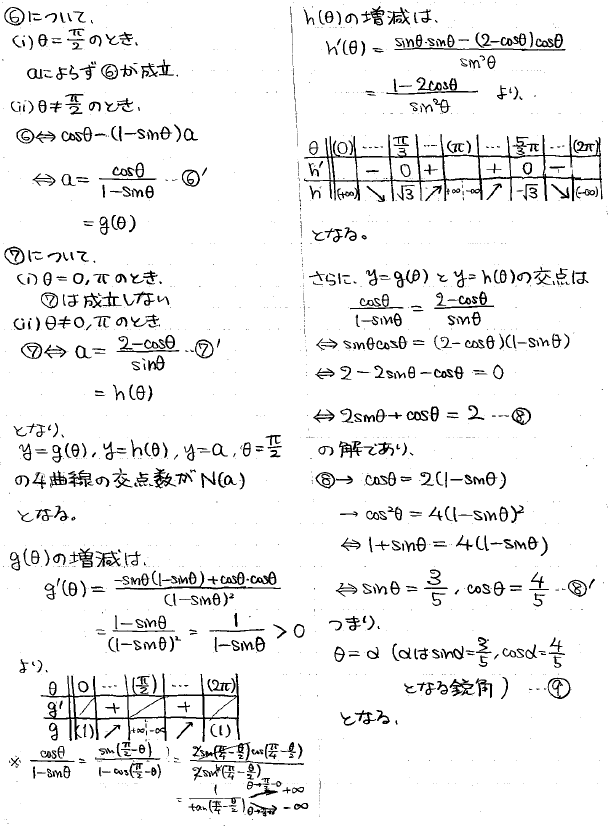 ⑥について、
(i) θ = π/2 のとき、
aによらず ⑥が成立.
(ii) θ ≠ π/2 のとき、
⑥⇔ cosθ - (1-sinθ)a
⇔ a = cosθ/(1-sinθ) … ⑥'
= g(θ)
⑦について、
(i) θ = 0, π のとき、
⑦は成立しない
(ii) θ ≠ 0, π のとき
⑦⇔ a = (2-cosθ)/sinθ … ⑦'
= h(θ)
となり、
y = g(θ), y = h(θ), y = a, θ = π/2
の4曲線の交点数が N(a)
となる。
g(θ)の増減は、
g'(θ) = (-sinθ(1-sinθ) + cosθ·cosθ)/(1-sinθ)²
= (1-sinθ)/(1-sinθ)² = 1/(1-sinθ) > 0
より、
θ | 0 | … | (π/2) | … | (2π)
g' | | + | | + |
g | (1) | ↗ | +∞ -∞ | ↗ | (1)
※ cosθ/(1-sinθ) = sin(π/2-θ)/(1-cos(π/2-θ)) = 2sin(π/4-θ/2)cos(π/4-θ/2)/2sin²(π/4-θ/2)
= 1/tan(π/4-θ/2) θ→π/2-0 +∞
θ→π/2+0 -∞
h(θ)の増減は、
h'(θ) = (sinθ·sinθ - (2-cosθ)cosθ)/sin²θ
= (1-2cosθ)/sin²θ より、
θ | (0) | … | π/3 | … | (π) | … | 5/3π | … | (2π)
h' | | - | 0 | + | | + | 0 | - |
h | (+∞) | ↘ | √3 | ↗ | +∞ -∞ | ↗ | -√3 | ↘ | (-∞)
となる。
さらに、y = g(θ) と y = h(θ)の交点は
cosθ/(1-sinθ) = (2-cosθ)/sinθ
⇔ sinθcosθ = (2-cosθ)(1-sinθ)
⇔ 2 - 2sinθ - cosθ = 0
⇔ 2sinθ + cosθ = 2 … ⑧
の解であり、
⑧→ cosθ = 2(1-sinθ)
→ cos²θ = 4(1-sinθ)²
⇔ 1+sinθ = 4(1-sinθ)
⇔ sinθ = 3/5, cosθ = 4/5 … ⑧'
つまり、
θ = α (αは sinα = 3/5, cosα = 4/5
となる鋭角) … ⑨
となる、